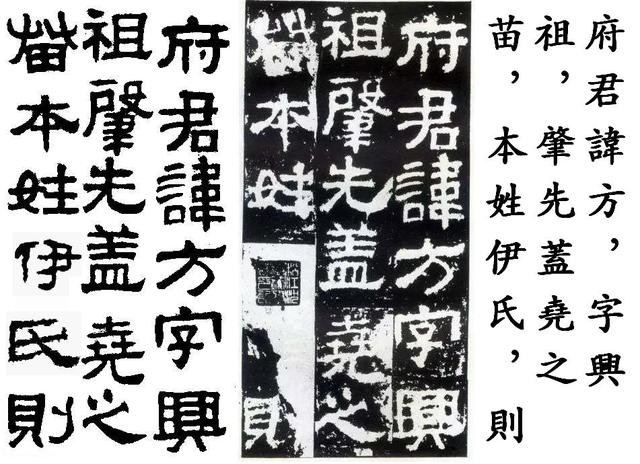 府君諱方,字興
祖,肇先蓋堯之
苗,本姓伊氏,則
府君諱方字興
祖肇先盖堯之
苗本姓則
府君諱方字興
祖肇先盖堯之
苗本姓伊氏則